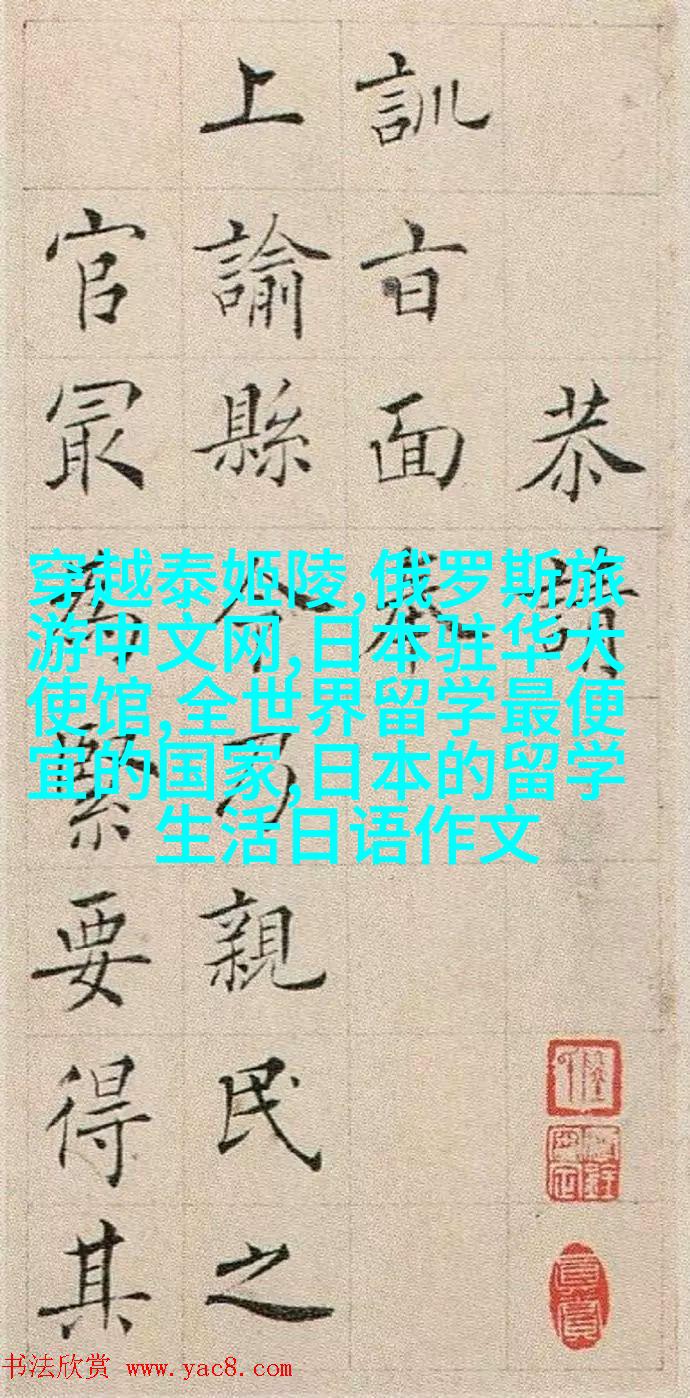 恭請
訓旨面奉
上諭縣令乃親民之
官冣為緊要得其
穿越泰姬陵,俄罗斯旅
游中文网,日本驻华大
使馆,全世界留学最便
宜的国家,日本的留学
生活日语作文
书法欣赏 www.yac8.com